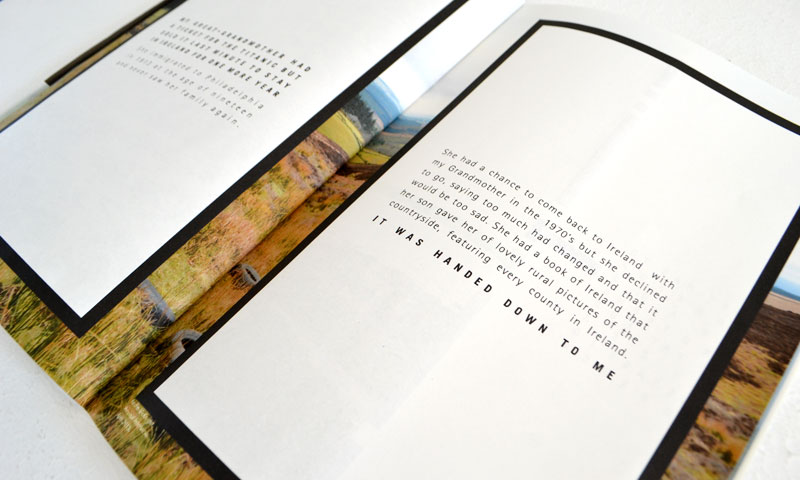 MY GREAT-GRANDMOTHER HAD
A TICKET FOR THE TITANIC BUT
SOLD IT LAST MINUTE TO STAY
IN IRELAND FOR ONE MORE YEAR
She immigrated to Philadelphia
in 1912 at the age of nineteen
and never saw her family again.
She had a chance to come back to Ireland with
my Grandmother in the 1970's but she declined
to go, saying too much had changed and that it
would be too sad. She had a book of Ireland that
her son gave her of lovely rural pictures of the
countryside, featuring every county in Ireland.
IT WAS HANDED DOWN TO ME